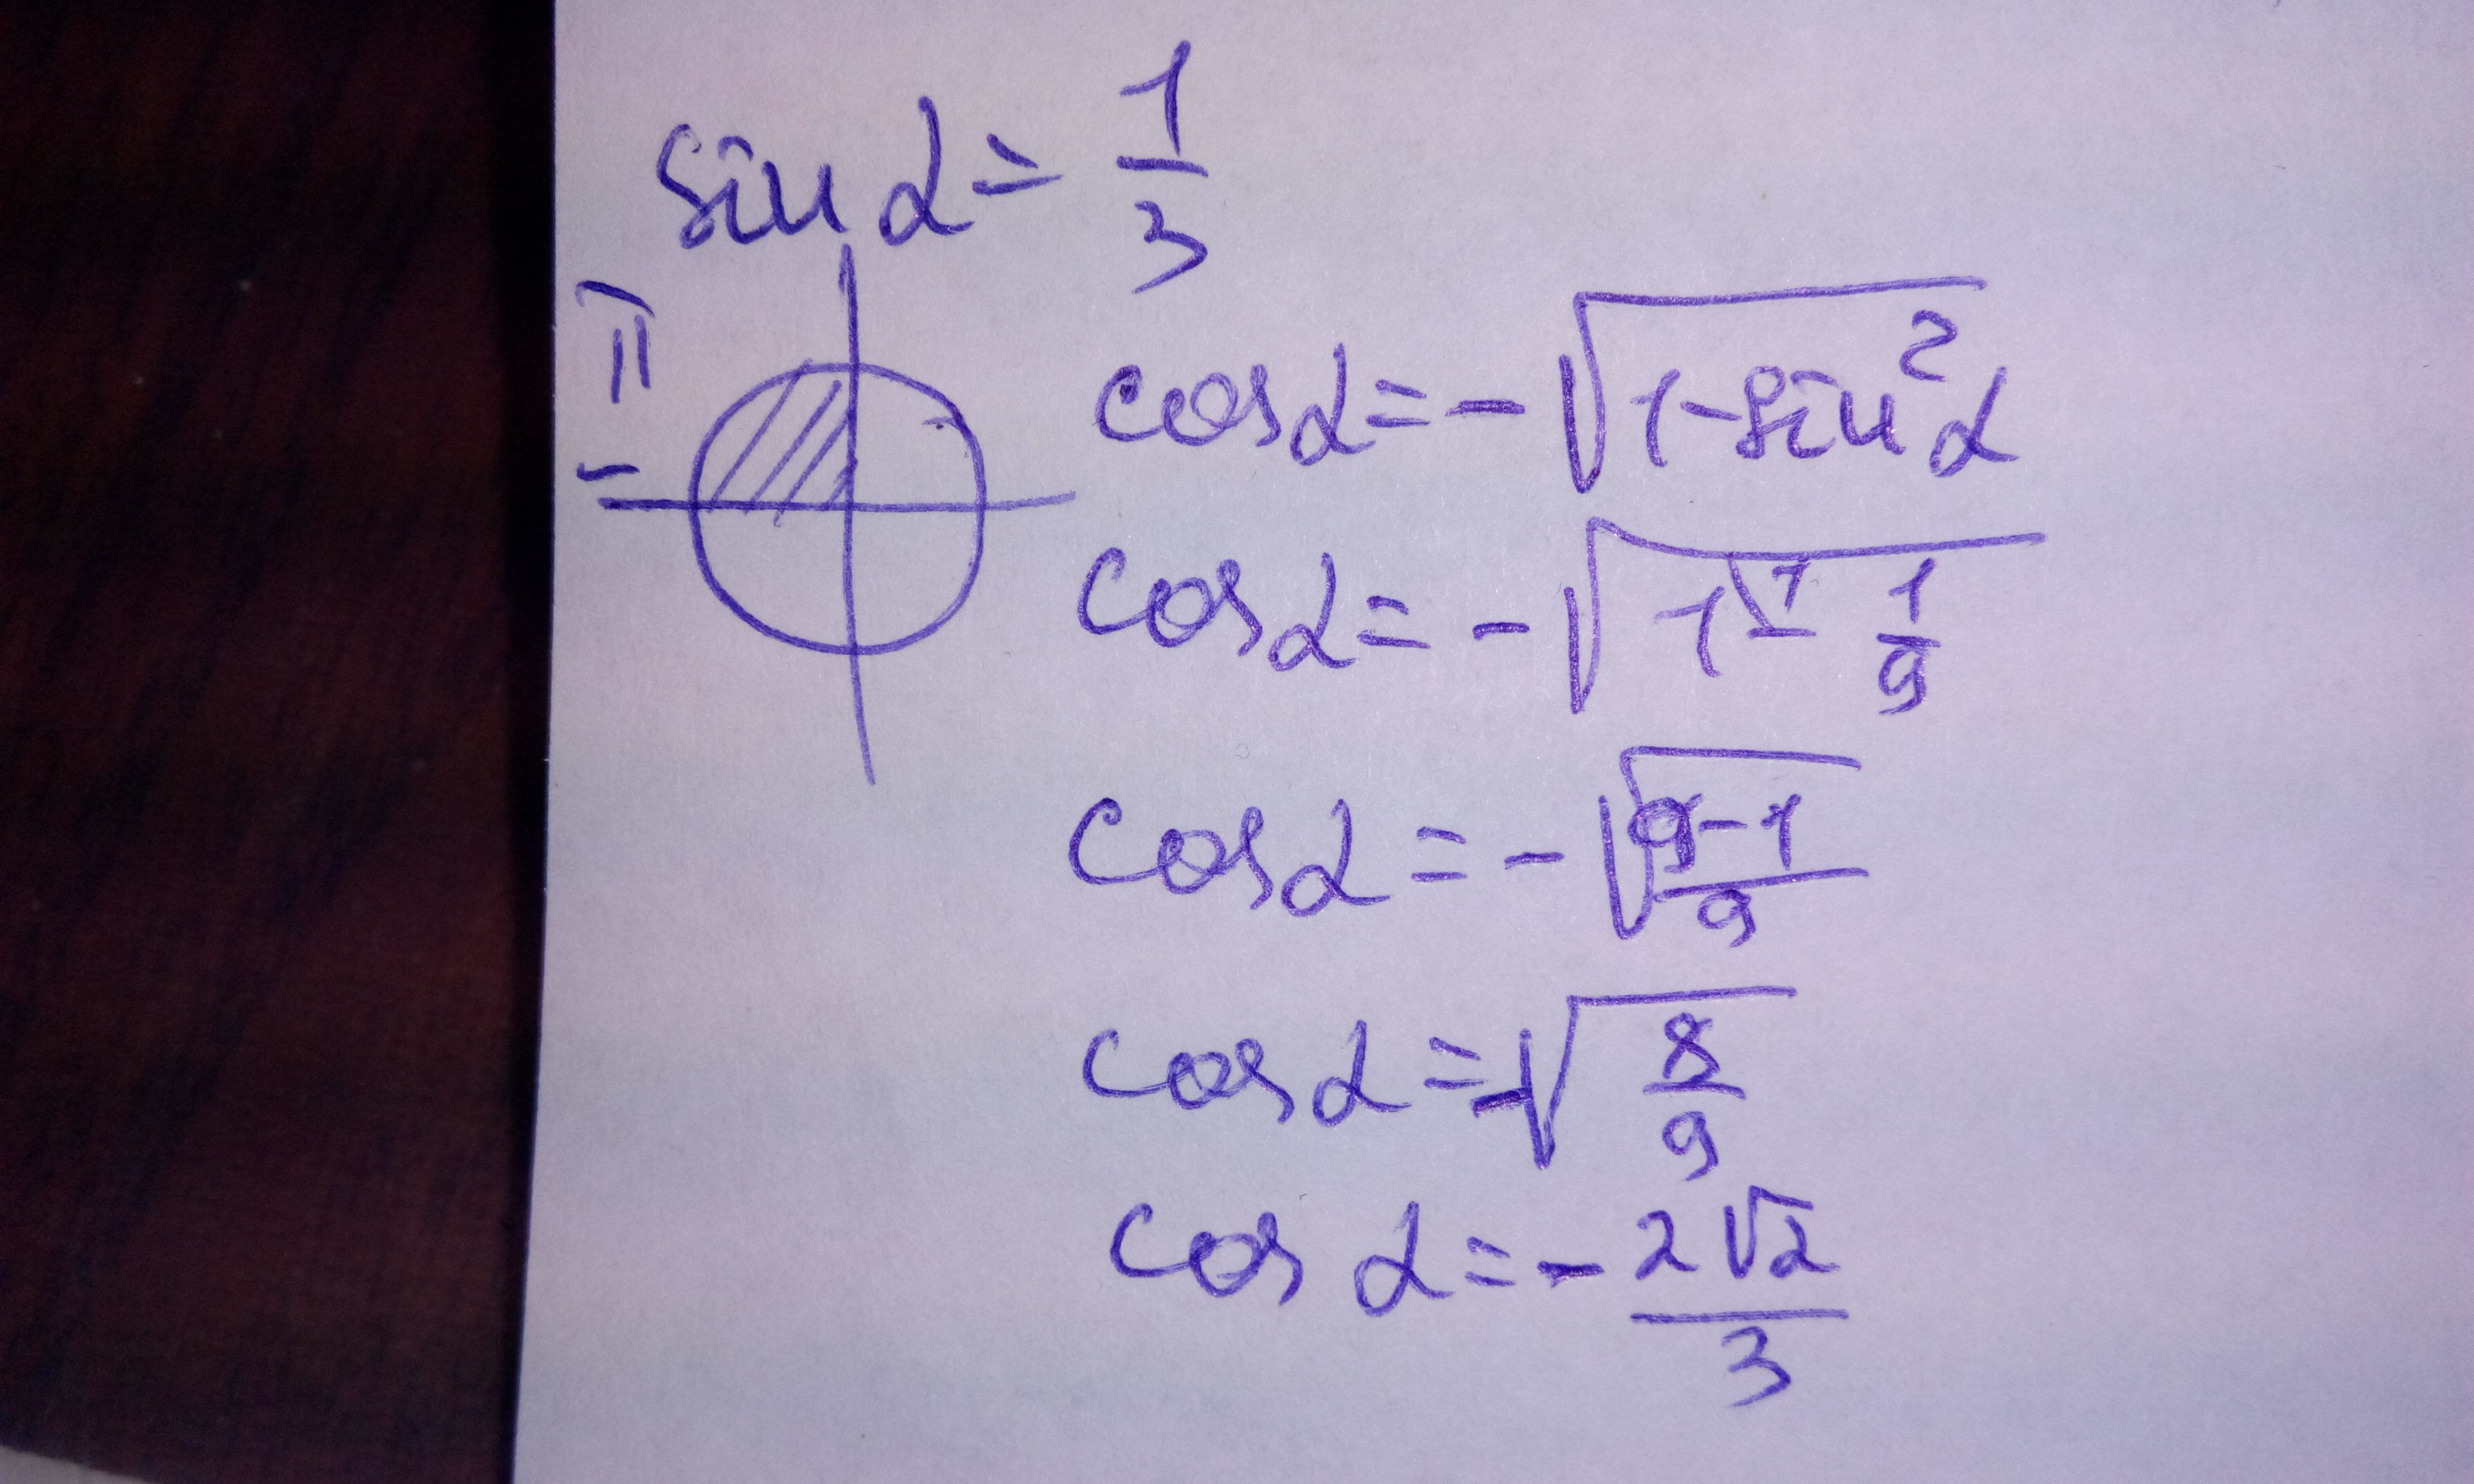 sin α = 1/3
II
−
cos α = −√(1−sin²α)
cos α = −√(1 − 1/9)
cos α = −√((9−1)/9)
cos α = −√(8/9)
cos α = − 2√2/3